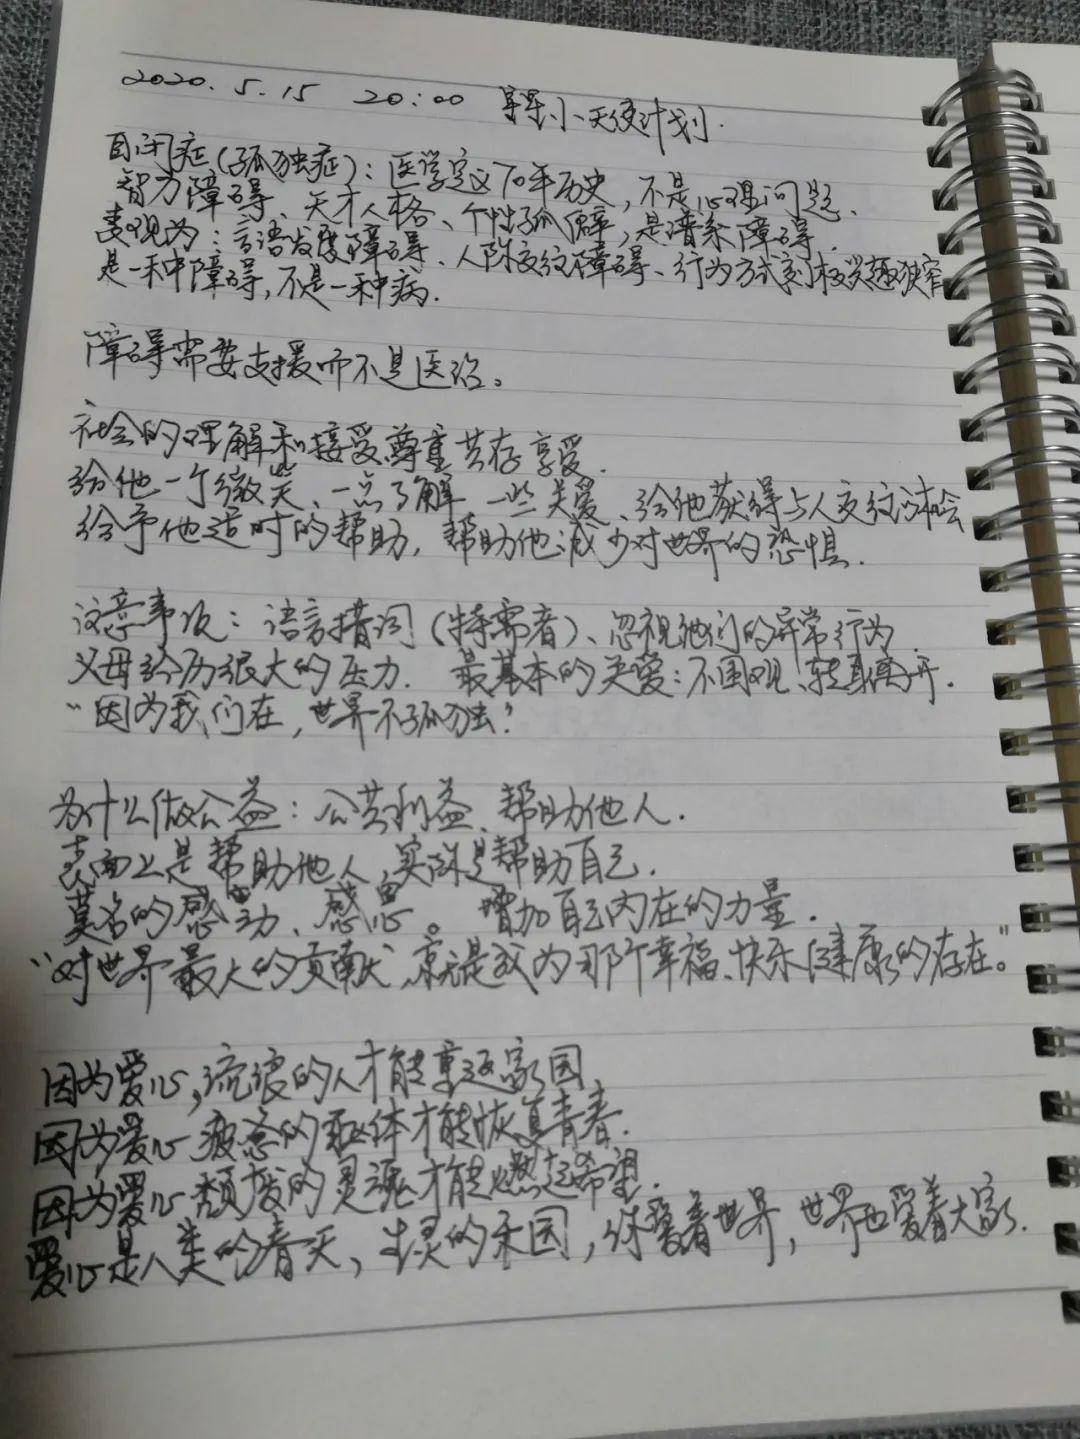 2020.5.15 20:00 星星小天使计划.
自闭症(孤独症):医学定义70年历史,不是心理问题、
智力障碍、天才人格、个性孤僻,是谱系障碍.
表现为:言语发展障碍、人际交往障碍、行为方式刻板兴趣狭窄
是一种障碍,不是一种病.
障碍需要支援而不是医治。
社会的理解和接受,尊重共存享受.
给他一个微笑、一点了解 一些关爱、给他获得与人交往体会
给予他适时的帮助,帮助他减少对世界的恐惧.
注意事项:语言措词(特需者)、忽视他们的异常行为.
父母经历很大的压力. 最基本的关爱:不围观、转身离开.
“因为我们在,世界不孤独!
为什么做公益:公共利益、帮助他人.
表面上是帮助他人,实际是帮助自己.
莫名的感动、感恩。增加自己内在的力量.
“对世界最大的贡献,就是成为那个幸福、快乐健康的存在。”
因为爱心,流浪的人才能重返家园
因为爱心 疲惫的躯体才能恢复青春.
因为爱心 颓废的灵魂才能燃起希望.
爱心是人类的春天、生灵的乐园,你爱着世界,世界也爱着大家.